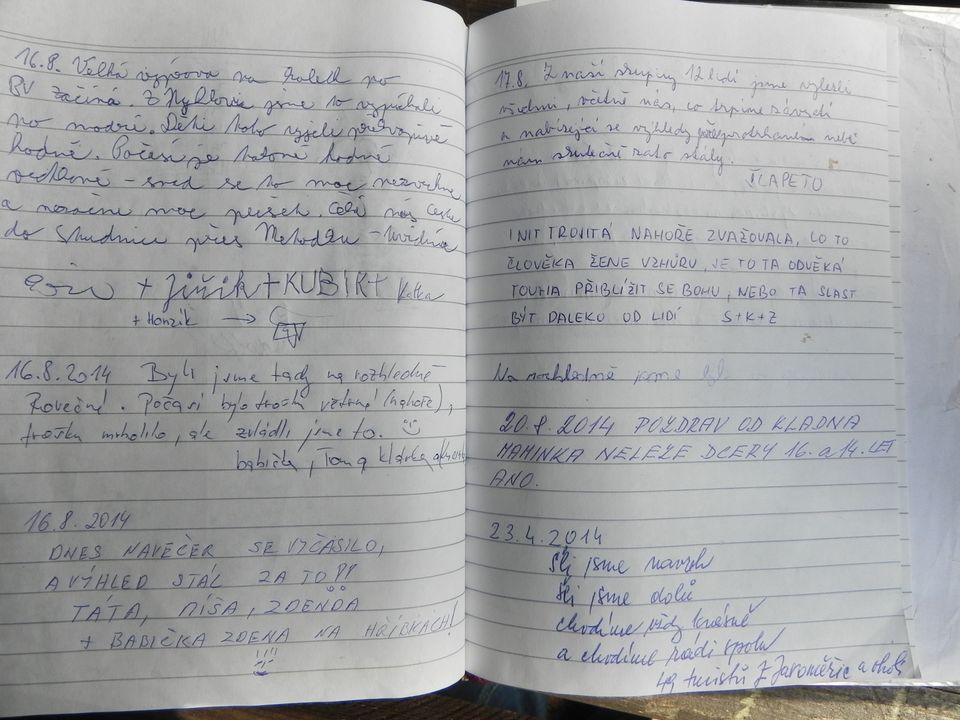 16.8. Velká výprava na kolech po
začíná. Z jsme to vyšplhali
po modré. Děti toho vyjely
hodně. Počasí je hodně
větrně – snad se to moc
a nezačne moc pršet. nás cesta
do Studnic přes –
+ Jiřík + KUBIK + Katka
+ Honzík →
16.8.2014 Byli jsme tady na rozhledně
Rovečné. Počasí bylo trochu větrné (nahoře),
trošku mrholilo, ale zvládli jsme to.
babička, Tom a Klárka
16.8.2014
DNES NAVEČER SE VYČASILO,
A VÝHLED STÁL ZA TO!!
TÁTA, MÍŠA, ZDENDA
+ BABIČKA ZDENA NA HŘÍBKÁCH!
17.8. Z naší skupiny 12 lidí jsme vylezli
všichni, včetně nás, co trpíme závratí
a nabízející se výhledy nebe
nám skutečně zato stály.
ŤLAPETO
NAHOŘE ZVAŽOVALA, CO TO
ČLOVĚKA ŽENE VZHŮRU, JE TO TA ODVĚKÁ
TOUHA PŘIBLÍŽIT SE BOHU, NEBO TA SLAST
BÝT DALEKO OD LIDÍ S+K+Z
Na rozhledně jsme
2014 POZDRAV OD KLADNA
MAMINKA NELEZE DCERY 16. a 14. LET
ANO.
23.4.2014
Šli jsme navrch
Šli jsme dolů
chodíme vždy krásně
a chodíme rádi spolu
49 turistů z Jaroměřic a okolí